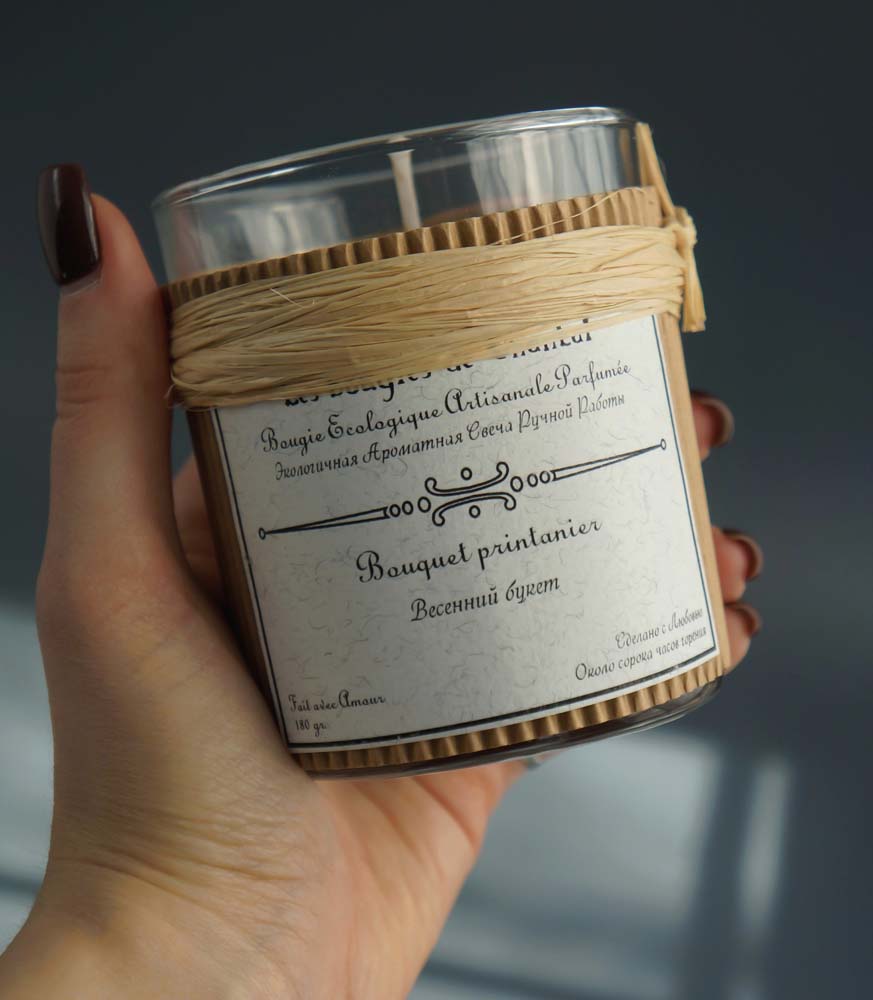 Les Bougies de Chantal
Bougie Ecologique Artisanale Parfumée
Экологичная Ароматная Свеча Ручной Работы
Bouquet printanier
Весенний букет
Сделано с Любовью
Около сорока часов горения
Fait avec Amour
180 gr.